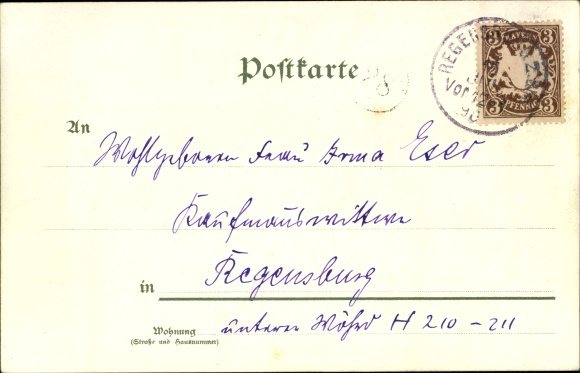 BAYERN
3 3
Postkarte
Vor 12
PFENNIG
3 3
An
Wohlgeboren Frau Irma Eser
Kaufmannswittwe
in Regensburg
Wohnung unterer Wöhrd H 210 - 211
(Straße und Hausnummer)